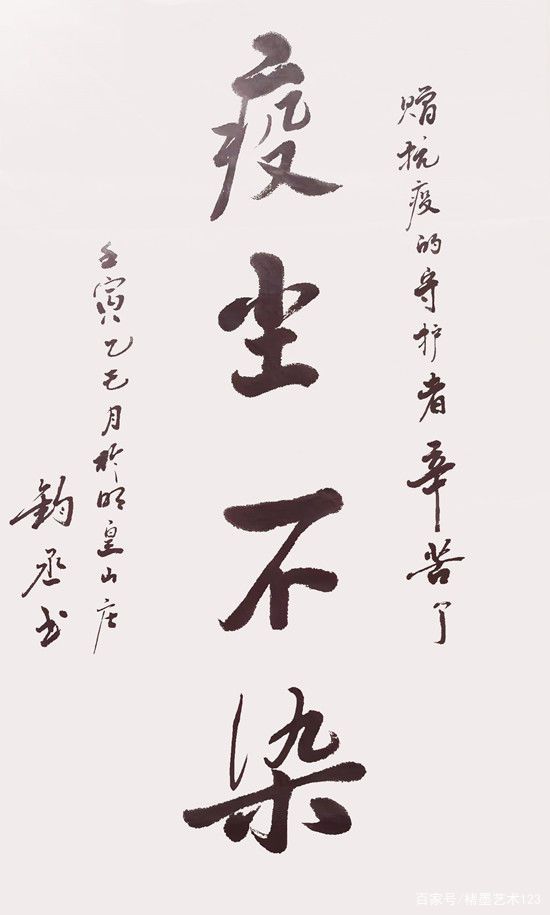 赠抗疫的守护者辛苦了
疫尘不染
壬寅乙巳月於明皇山庄
钧丞书
百家号/楮墨艺术123